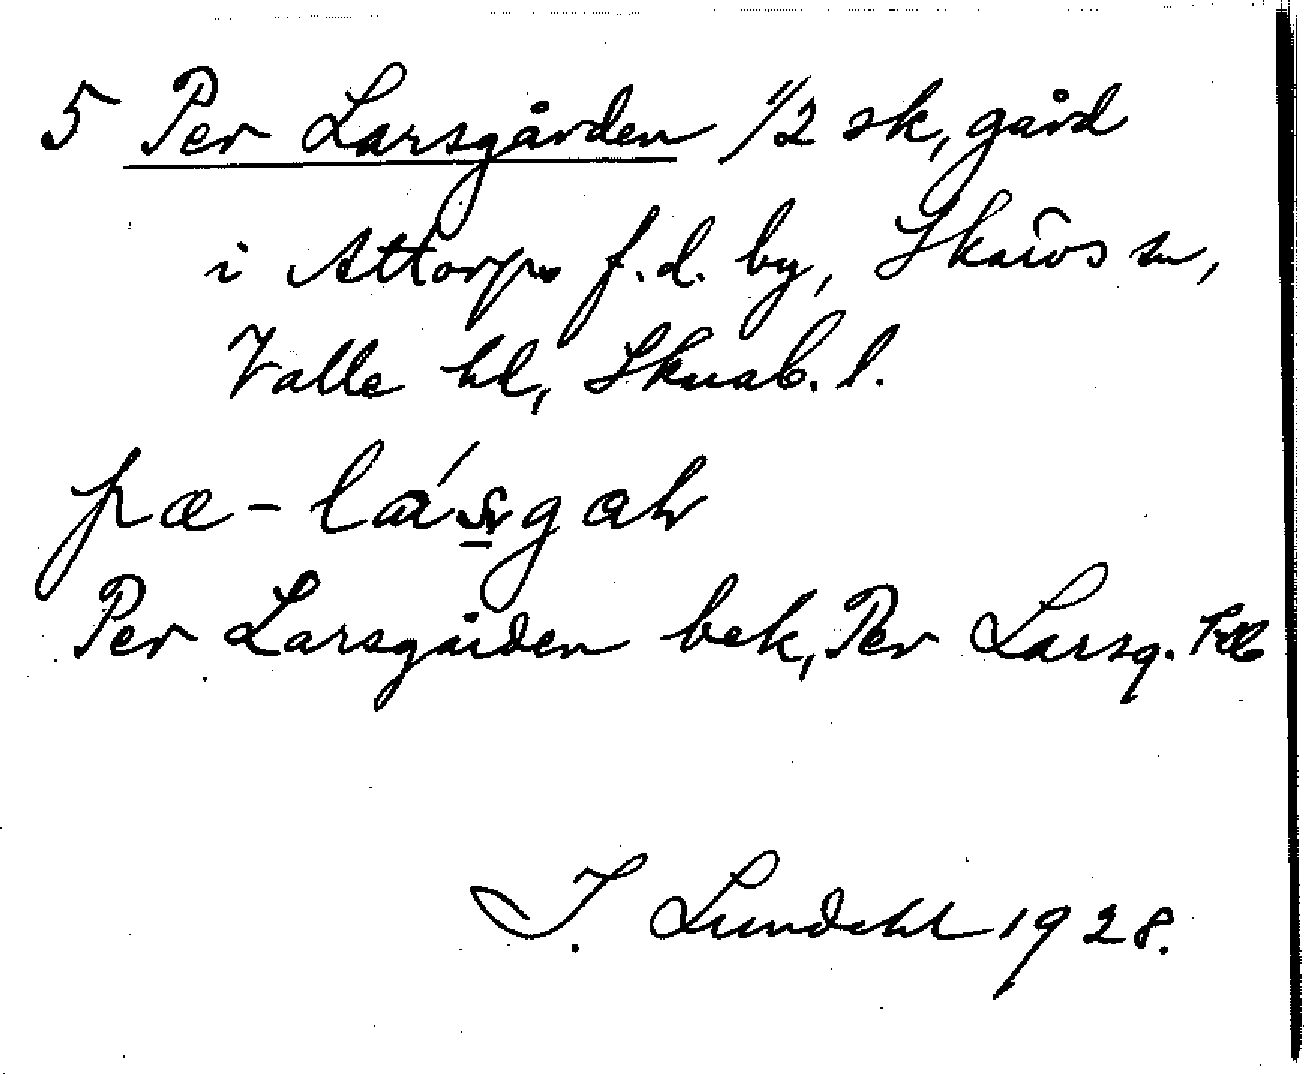 5 Per Larsgården 1/2 sk, gård
i Attorps f.d. by, Skärvs sn,
Valle hd, Skarab. l.
pæ-lásgah
Per Larsgården bek, Per Larsg.
I. Lundahl 1928.